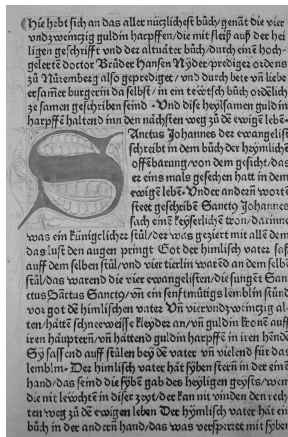 Hie hebt sich an das aller nüczlichest bůch/genāt die vier
vnd zweinczig guldin harpffen/die mit fleiß auß der hei
ligen geschrifft vnd der altuäter bůch/durch eine hoch-
gelerten doctor Brůder Hansen Nyder/prediger ordens
zů Nüremberg also geprediget/vnd durch bete vn̄ liebe
ersam̄er burgerin da selbst/in ein teütsch bůch ordēlich
ze samen geschriben seind · Vnd dise heylsamen guldin
harpffē haltend inn den nächsten weg zů dē ewigē lebē·
SAnctus Johannes der ewangelist
schreibt in dem bůch der heymlichē
offēbarung/von dem gesicht/das
er eins mals gesehen hatt in dem
ewigē lebē·Vnder andern wortē
steet geschribē Sanctꝰ Johannes
sach einē keyserlichē tron/darinne
was ein künigrlicher stůl/der was geziert mit alle dem
das lust den augen pringt Got der himlisch vater saß
auff dem selben stůl/vnd vier tierlin warēd an dem selbē
stůl/das warend die vier ewangelisten/die sungēt San
ctus Sāctus Sanctꝰ/vn̄ ein senfftmůtigs lemblin stůnd
vor got dē himlischen vater Vn̄ viervndzweinczig al-
ten/hattē schneeweisse kleyder an/vn̄ guldin kronē auff
iren häuptern/vn̄ hattend guldin harpffē in iren hendē
Sy sassend auff stůlen bey dē vater vn̄ vielend für das
lemblin · Der himlisch vater hät syben stern in der einē
hand/das seind die sybē gab des heyligen geysts/wen̄
die nit lewchtē in diser zeyt/der kan nit vinden den rech
ten weg zů dē ewigen leben Der hymlisch vater hät ein
bůch in der andern hand/das was versperret mit syben